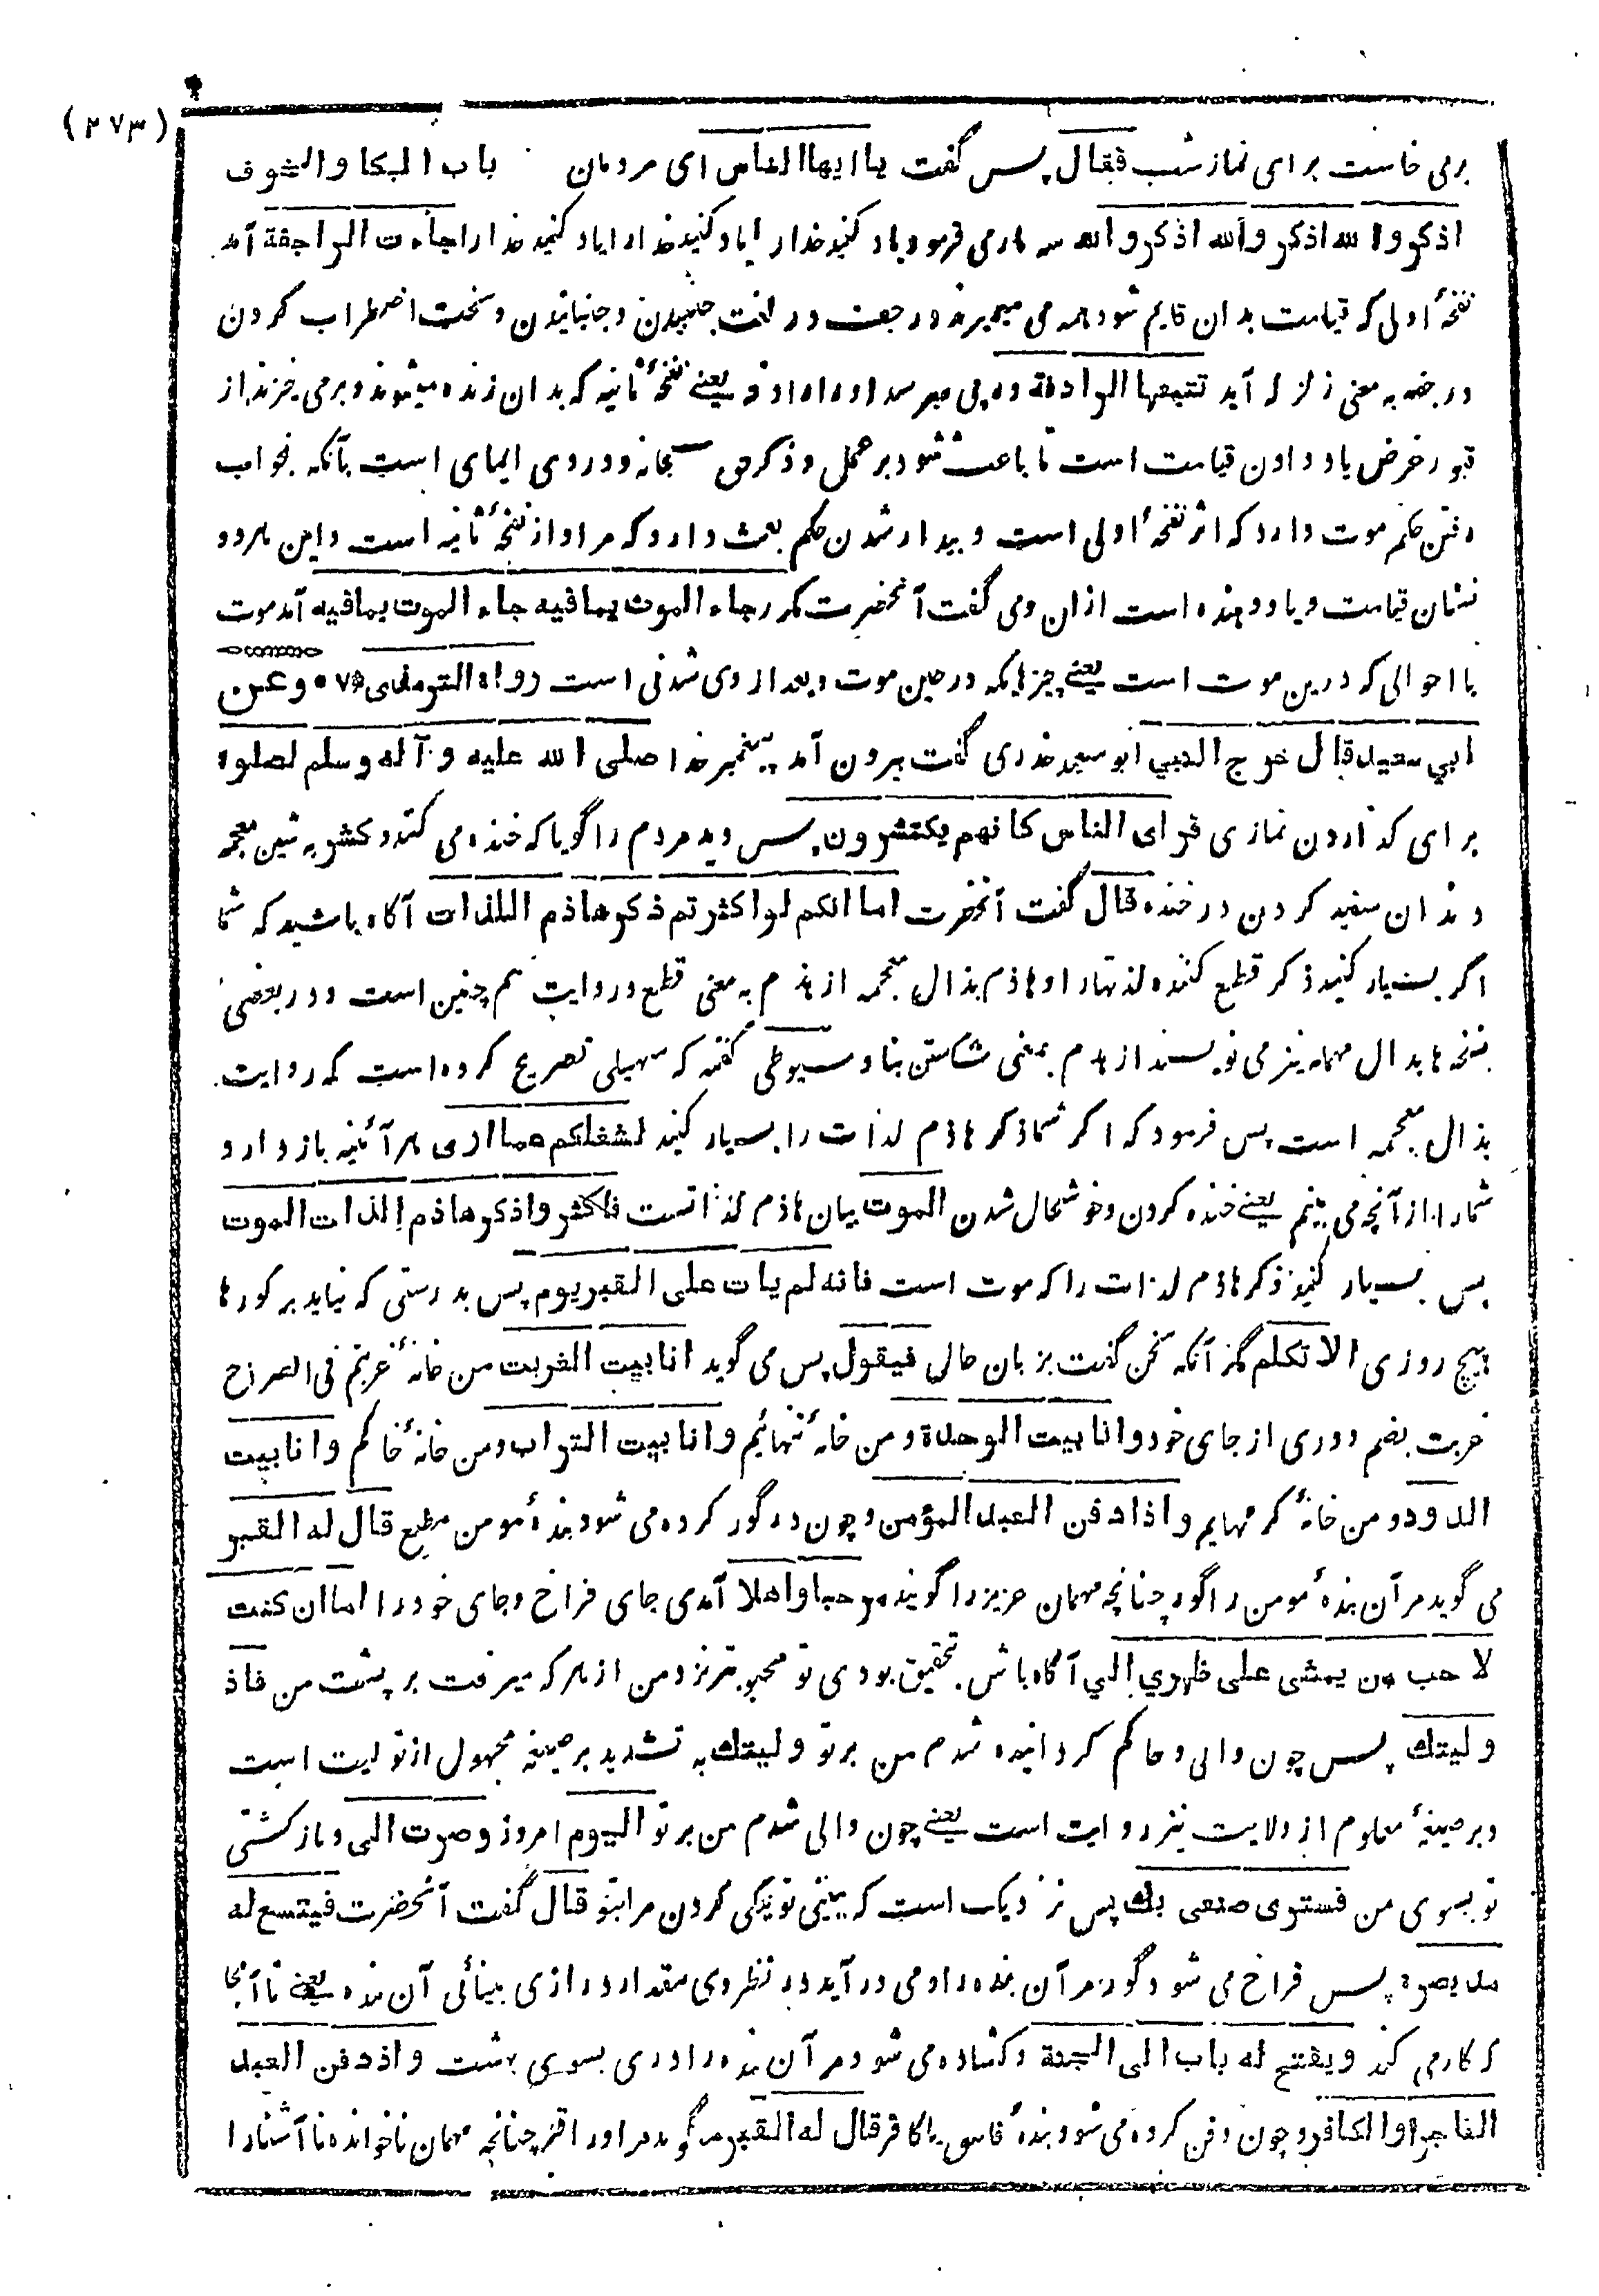 (٢٧٣)
برمی خاست برای نماز شب فقال پس گفت یا ایها الناس ای مردمان باب البکا والخوف
اذکروا الله اذکروا الله اذکروا الله سه بار می فرمود یاد کنید خدارا یاد کنید خدارا یاد کنید خدارا جاءت الراجفة آمد
نفخهٔ اولی که قیامت بدان قایم شود همه می میرند و رجف در لغت جنبیدن و جنبانیدن و سخت اضطراب کردن
و رجفه به معنی زلزله آید تتبعها الرادفة در پی میرسد اورا رادفه یعنے نفخهٔ ثانیه که بدان زنده میشوند و برمی خیزند از
قبور غرض یاد دادن قیامت است تا باعث شود بر عمل و ذکر حق سبحانه و دروی ایمای است بآنکه بخواب
رفتن حکم موت دارد که اثر نفخهٔ اولی است و بیدار شدن حکم بعث دارد که مراد از نفخهٔ ثانیه است و این هردو
نشان قیامت و یاد دهنده است ازان و می گفت آنحضرت مکرر جاء الموت بما فیه جاء الموت بما فیه آمد موت
با احوالی که درین موت است یعنے چیزهایکه در حین موت و بعد از وی شدنی است رواه الترمذی ۷۵۰ وعن
ابی سعید قال خرج النبي ابو سعید خدری گفت بیرون آمد پیغمبر خدا صلی الله علیه و آله وسلم لصلوة
برای گذاردن نمازی فرای الناس کانهم یکتشرون پس دید مردم را گویا که خنده می کنند و کشر به شین معجمه
دندان سفید کردن در خنده قال گفت آنحضرت اما انکم لو اکثرتم ذکر هاذم اللذات آگاه باشید که شما
اگر بسیار کنید ذکر قطع کننده لذتهارا و هاذم بذال معجمه از هذم به معنی قطع در روایت هم چنین است و در بعضی
نسخه ها بدال مهمله نیز می نویسند از هدم بمعنی شکستن بنا و سیوطی گفته که سهیلی تصریح کرده است که روایت
بذال معجمه است پس فرمود که اگر شما ذکر هاذم لذات را بسیار کنید لشغلکم عما اری هر آئینه باز دارد
شمارا از آنچه می بینم یعنے خنده کردن و خوشحال شدن الموت بیان هاذم لذاتست فاکثروا ذکر هاذم اللذات الموت
پس بسیار کنید ذکر هاذم لذات را که موت است فانه لم یات علی القبر یوم پس بدرستی که نیاید بر گورها
هیچ روزی الا تکلم مگر آنکه سخن گفت بزبان حالی فیقول پس می گوید انا بیت الغربت من خانهٔ غربتم فی الصراح
غربت بضم دوری از جای خود وانا بیت الوحدة و من خانهٔ تنهائیم وانا بیت التراب و من خانهٔ خاکم وانا بیت
الدود و من خانهٔ کرمهایم واذا دفن العبد المؤمن و چون در گور کرده می شود بندهٔ مومن مطیع قال له القبر
می گوید مر آن بندهٔ مومن را گور چنانچه مهمان عزیز را گویند مرحبا واهلا آمدی جای فراخ و جای خود را اما ان کنت
لاحب من یمشی علی ظهري الي آگاه باش بتحقیق بودی تو محبوبتر نزد من از هر که میرفت بر پشت من فاذ
ولیتك پس چون والی و حاکم گردانیده شدم من بر تو ولیتك به تشدید بر صیغهٔ مجهول از تولیت است
و بر صیغهٔ معلوم از ولایت نیز روایت است یعنے چون والی شدم من بر تو الیوم امروز وصرت الی و باز گشتی
تو بسوی من فستری صنعی بك پس نزدیک است که ببینی تو نیکی کردن مرا بتو قال گفت آنحضرت فیتسع له
مد بصره پس فراخ می شود گور مر آن بنده را و می در آید در نظر وی مقدار درازی بینائی آن بنده یعنے تا آنجا
که کار می کند ویفتح له باب الی الجنة و کشاده می شود مر آن بنده را دری بسوی بهشت واذ دفن العبد
الفاجر او الکافر و چون دفن کرده می شود بندهٔ فاسق یا کافر قال له القبر میگوید مر اورا قبر چنانچه مهمان ناخوانده نا آشنا را